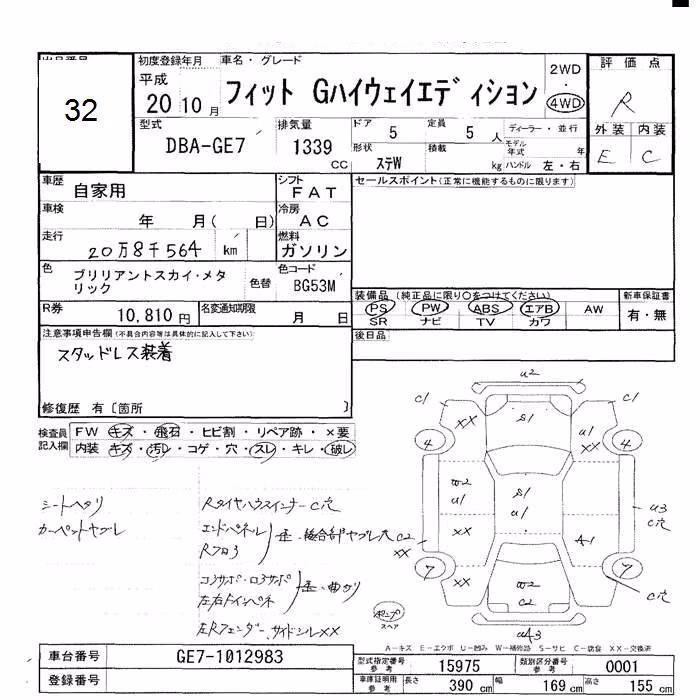 出品番号
32
初度登録年月
平成
20年10月
車名・グレード
フィット Gハイウェイエディション
2WD
・
4WD
評価点
R
外装 内装
E C
型式
DBA-GE7
排気量
1339
CC
ドア 5
定員 5 人
形状 ステW
積載 kg
ディーラー・並行
モデル年式 年
ハンドル 左・右
車歴
自家用
シフト
FAT
車検
年 月( 日)
冷房
AC
走行
20万8千564 km
燃料
ガソリン
色
ブリリアントスカイ・メタ
リック
色替
色コード
BG53M
R券
10,810 円
名変通知期限
月 日
セールスポイント(正常に機能するものに限ります)
装備品 (純正品に限り○をつけてください)
PS PW ABS エアB AW
SR ナビ TV カワ
新車保証書
有・無
後日品
注意事項申告欄(不具合内容等は具体的に記入して下さい)
スタッドレス装着
修復歴 有〔箇所 〕
検査員
記入欄
FW キズ・飛石・ヒビ割・リペア跡・×要
内装 キズ・汚レ・コゲ・穴・スレ・キレ・破レ
シートヘタリ
カーペットヤブレ
RタイヤハウスインナーC穴
エンドパネル
Rフロ3
歪・接合部ヤブレ大
コアサポ・ロアサポ
歪・曲がり
左Rフェンダー、サイドシルXX
u2
C1
XX
S1
C1
u1
XX
4
4
W2
u1
S1
u1
u3
C穴
C2
XX
XX
A1
7
XX
W2
C2
XX
7
C穴
スペア
A-キズ E-エクボ U-凹み W-補修跡 S-サビ C-腐食 XX-交換済
車台番号
GE7-1012983
登録番号
型式指定番号
参考
15975
類別区分番号
参考
0001
車庫証明用
参考
長さ 390 cm
幅 169 cm
高さ 155 cm